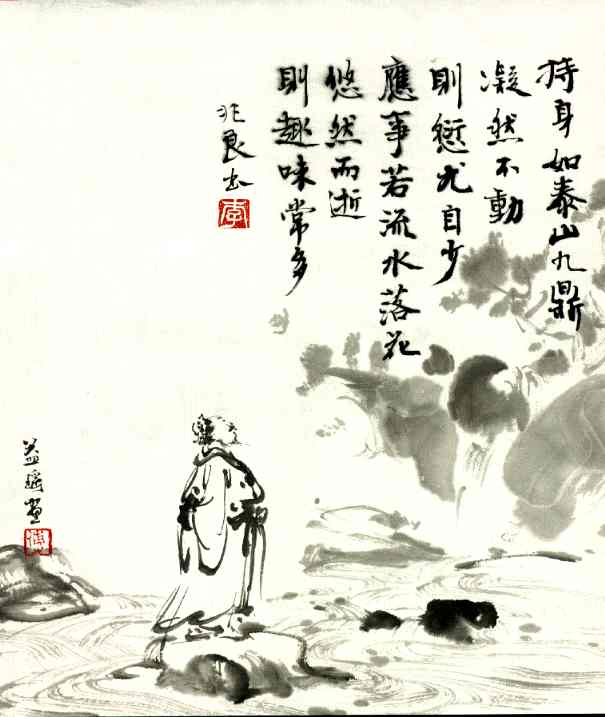 持身如泰山九鼎
凝然不動
則愆尤自少
應事若流水落花
悠然而逝
則趣味常多
兆良书
李
益瑤画